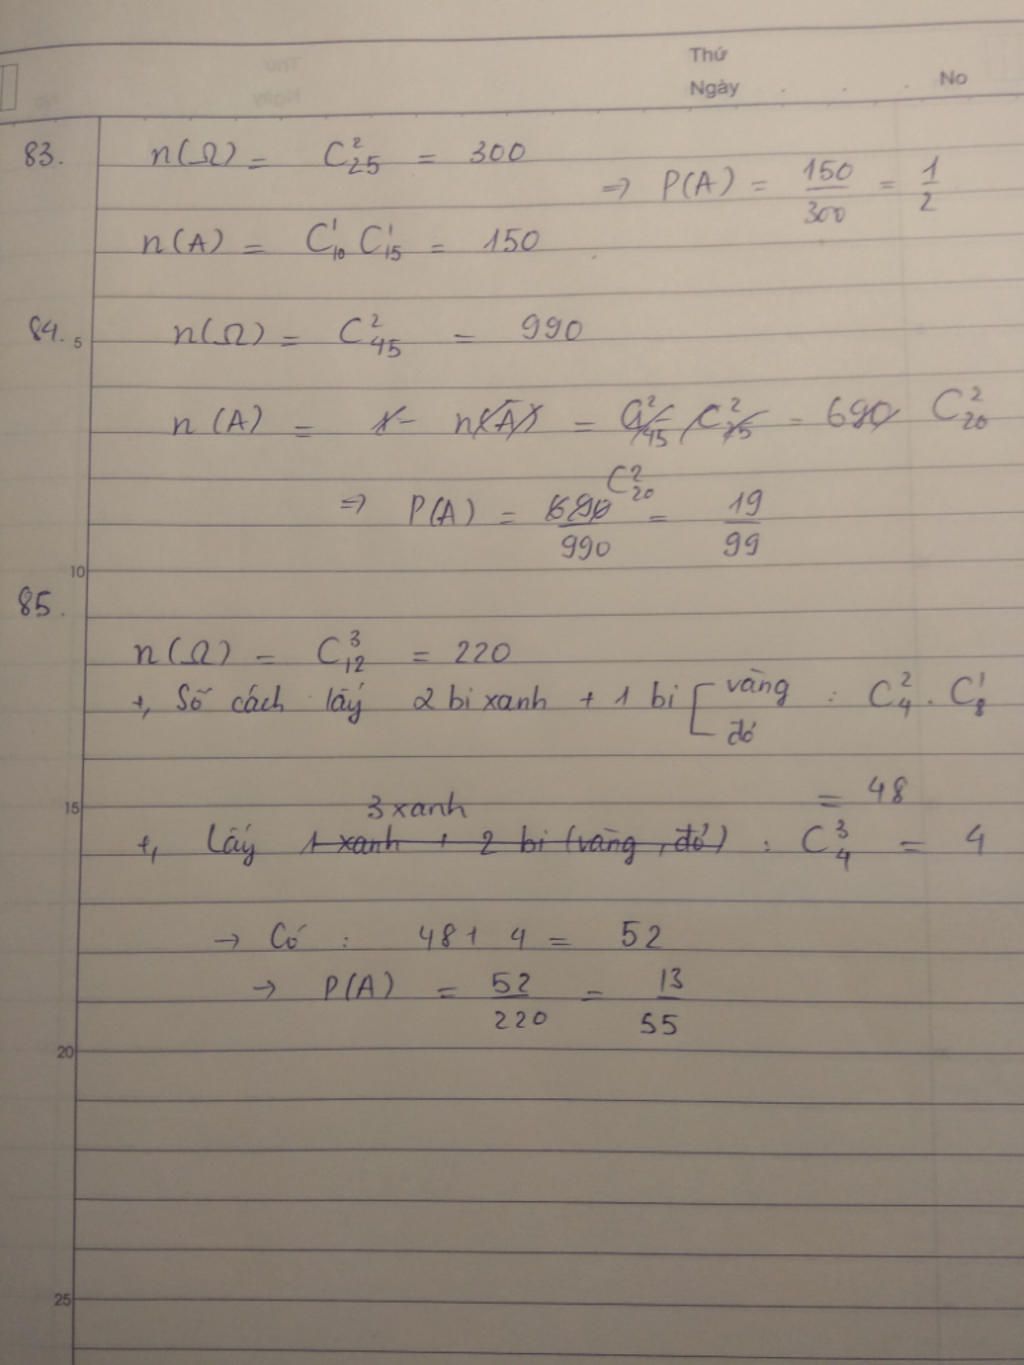 Thứ
Ngày . . . No
83. n(Ω) = C²₂₅ = 300
⇒ P(A) = 150/300 = 1/2
n(A) = C¹₁₀ C¹₁₅ = 150
84. 5 n(Ω) = C²₄₅ = 990
n(A) = 1 - n(A) = C²₄₅ C²₂₅ = 690 C²₂₀
C²₂₀
⇒ P(A) = 690/990 = 19/99
10
85.
n(Ω) = C³₁₂ = 220
+, Số cách lấy 2 bi xanh + 1 bi [ vàng : C²₄ . C¹₈
đỏ
15 = 48
3 xanh
+, Lấy 1 xanh + 2 bi (vàng, đỏ) : C³₄ = 4
→ Có : 48 + 4 = 52
→ P(A) = 52/220 = 13/55
20
25